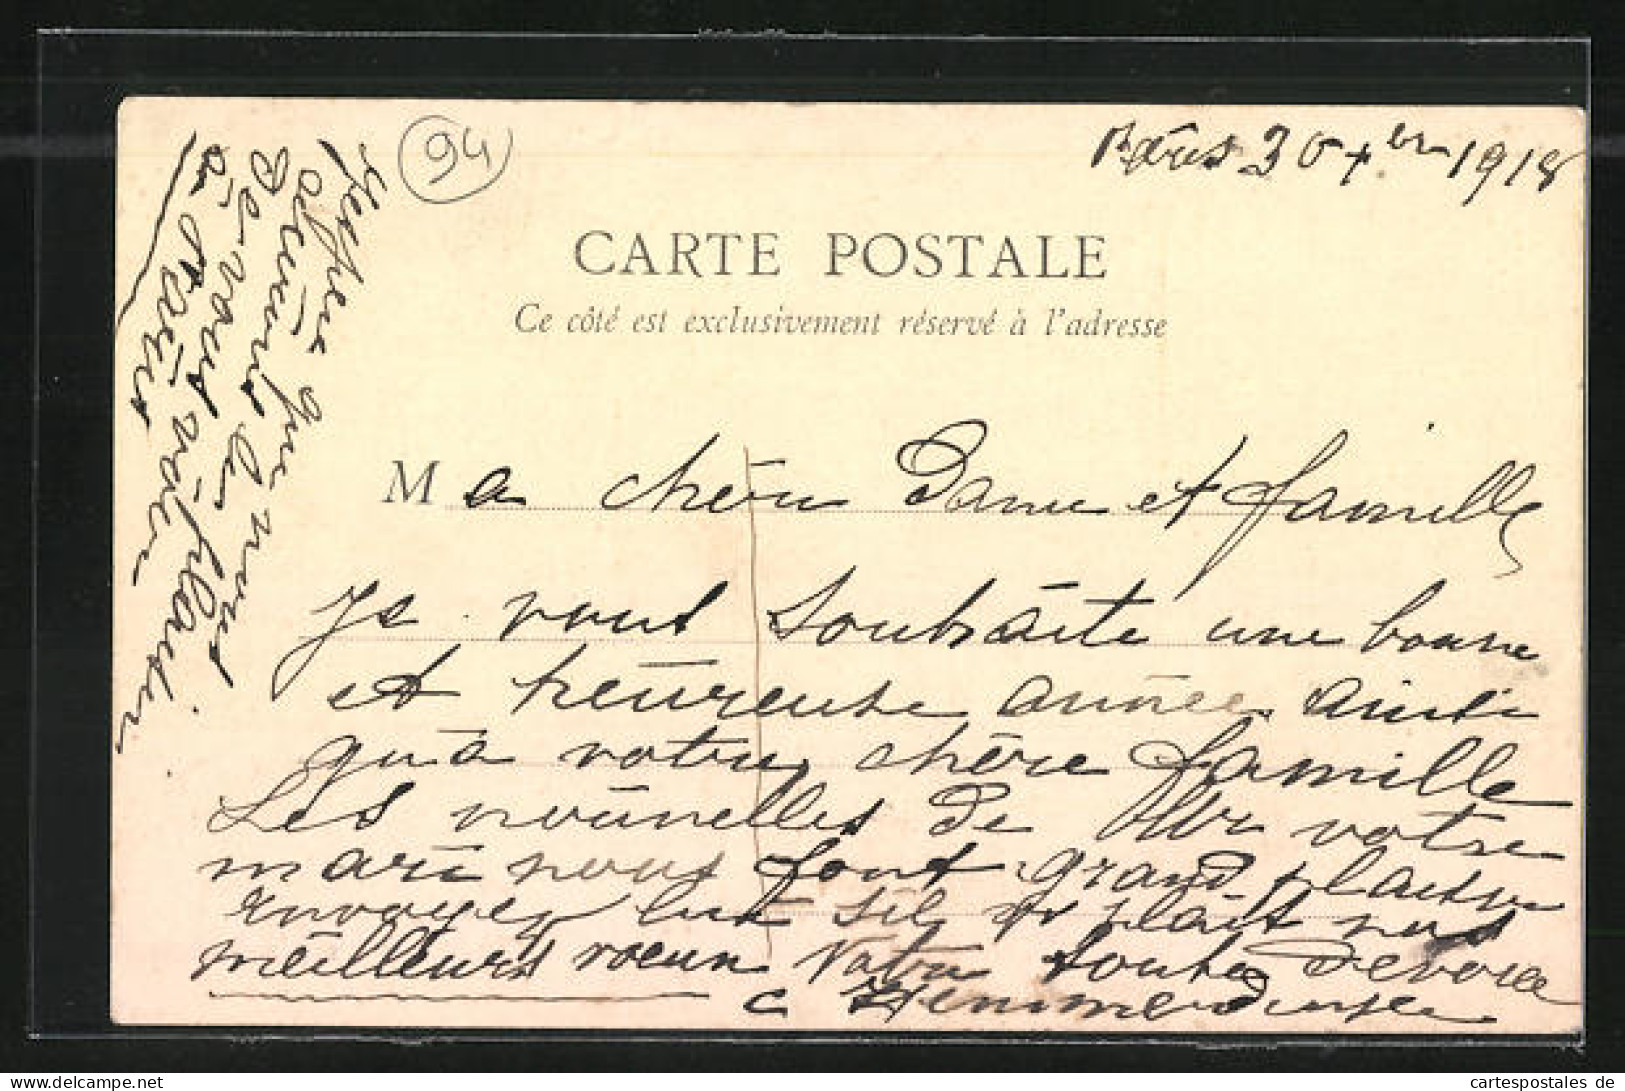 94
Paris 30 Xbre 1918
CARTE POSTALE
Ce côté est exclusivement réservé à l'adresse
Ma chère Dame et famille
Je vous souhaite une bonne
et heureuse année ainsi
qu'à votre chère famille
Les nouvelles de Mr votre
mari nous font grand plaisir
Envoyez lui s'il vous plait nos
meilleurs vœux Votre toute dévouée
C
J'espère que nous
aurons le plaisir
de vous voir
à Paris
cartespostales de